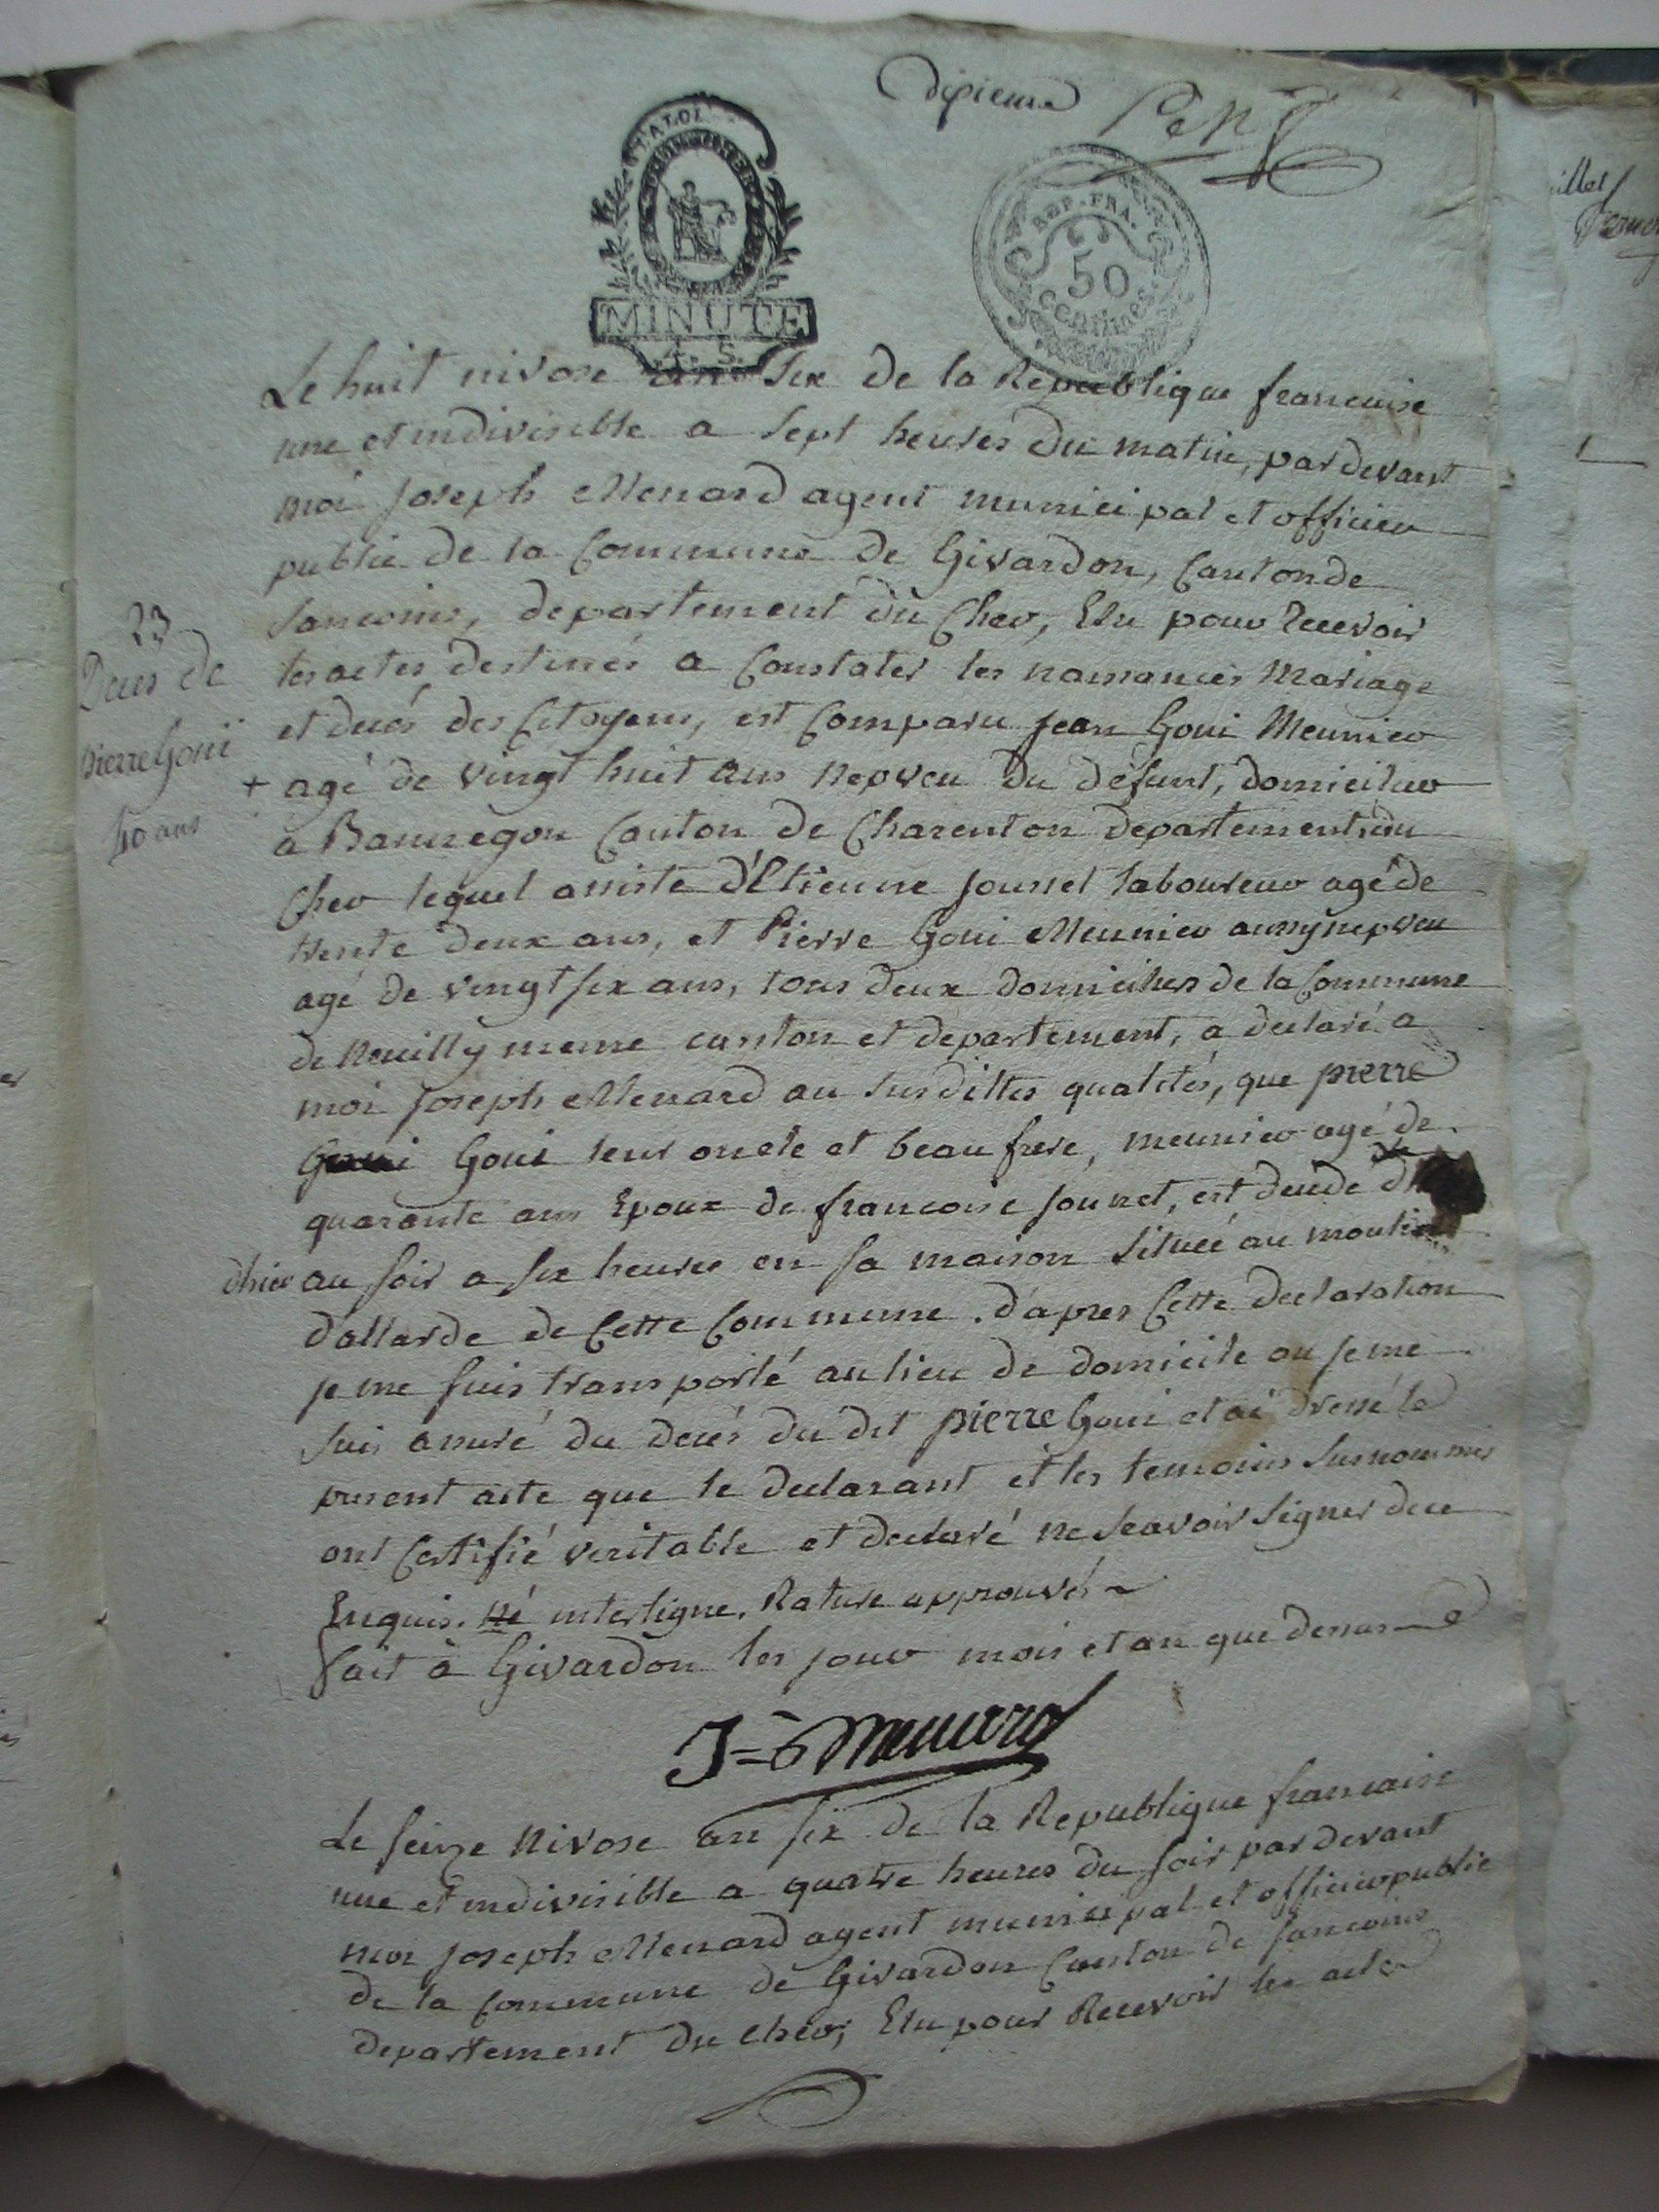 dixieme
REP. FRA.
50
centimes.
MINUTE
Le huit nivose an six de la Republique francaise
une et indivisible a sept heures du matin, pardevant
moi joseph Menard agent municipal et officier
public de la Commune de Givardon, Canton de
Sancoins, departement du Cher, Elu pour Recevoir
les actes destinés a Constater les naissances Mariage
et decés des Citoyens, est Comparu jean Goui Meunier
23
Deces de
pierre Goui
40 ans
+ agé de vingt huit ans nepveu du défunt, domicilier
à Bannegon Canton de Charenton departement du
Cher lequel assisté d'Etienne jousset laboureur agé de
trente deux ans, et Pierre Goui Meunier aussy nepveu
agé de vingt six ans, tous deux domiciliers de la Commune
de Neuilly meme canton et departement, a declaré a
moi joseph Menard au susdittes qualités, que pierre
Goui leur oncle et beau frere, meunier agé de
quarante ans Epoux de francoise jousset, est decedé
dhier au soir a six heures en sa maison située au moulin
dallarde de Cette Commune. d'apres Cette declaration
je me suis transporté au lieu de domicile ou je me
suis assuré du decés du dit pierre Goui et ai dressé le
present acte que le declarant et les temoins susnommés
ont Certifié veritable et declaré ne scavoir signer de ce
Enquis. né interligne, Rature approuvés
fait à Givardon les jour mois et an que dessus
J=h Menard
Le seize Nivose an six de la Republique francaise
une et indivisible a quatre heures du soir pardevant
moi joseph Menard agent municipal et officier public
de la Commune de Givardon Canton de Sancoins
departement du Cher, Elu pour Recevoir les actes